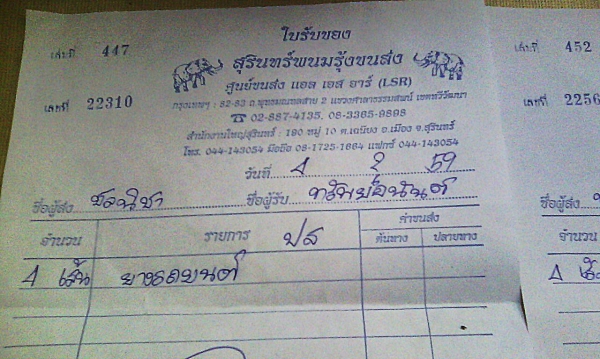 ใบรับของ
เล่มที่ 447
สุรินทร์พนมรุ้งขนส่ง
ศูนย์ขนส่ง แอล เอส อาร์ (LSR)
เลขที่ 22310
กรุงเทพฯ : 82-83 ถ.พุทธมณฑลสาย 2 แขวงศาลาธรรมสพน์ เขตทวีวัฒนา
☎ 02-887-4135, 08-3365-9898
สำนักงานใหญ่สุรินทร์ : 190 หมู่ 10 ต.เฉนียง อ.เมือง จ.สุรินทร์
โทร. 044-143054 มือถือ 08-1725-1664 แฟกซ์ 044-143054
วันที่ 4 2 59
ชื่อผู้ส่ง ชลนิชา ชื่อผู้รับ
จำนวน รายการ ปส ค่าขนส่ง
ต้นทาง ปลายทาง
4 เส้น ยางรถยนต์
เล่มที่ 452
เลขที่ 2256
ชื่อผู้ส่ง
จำนวน
4